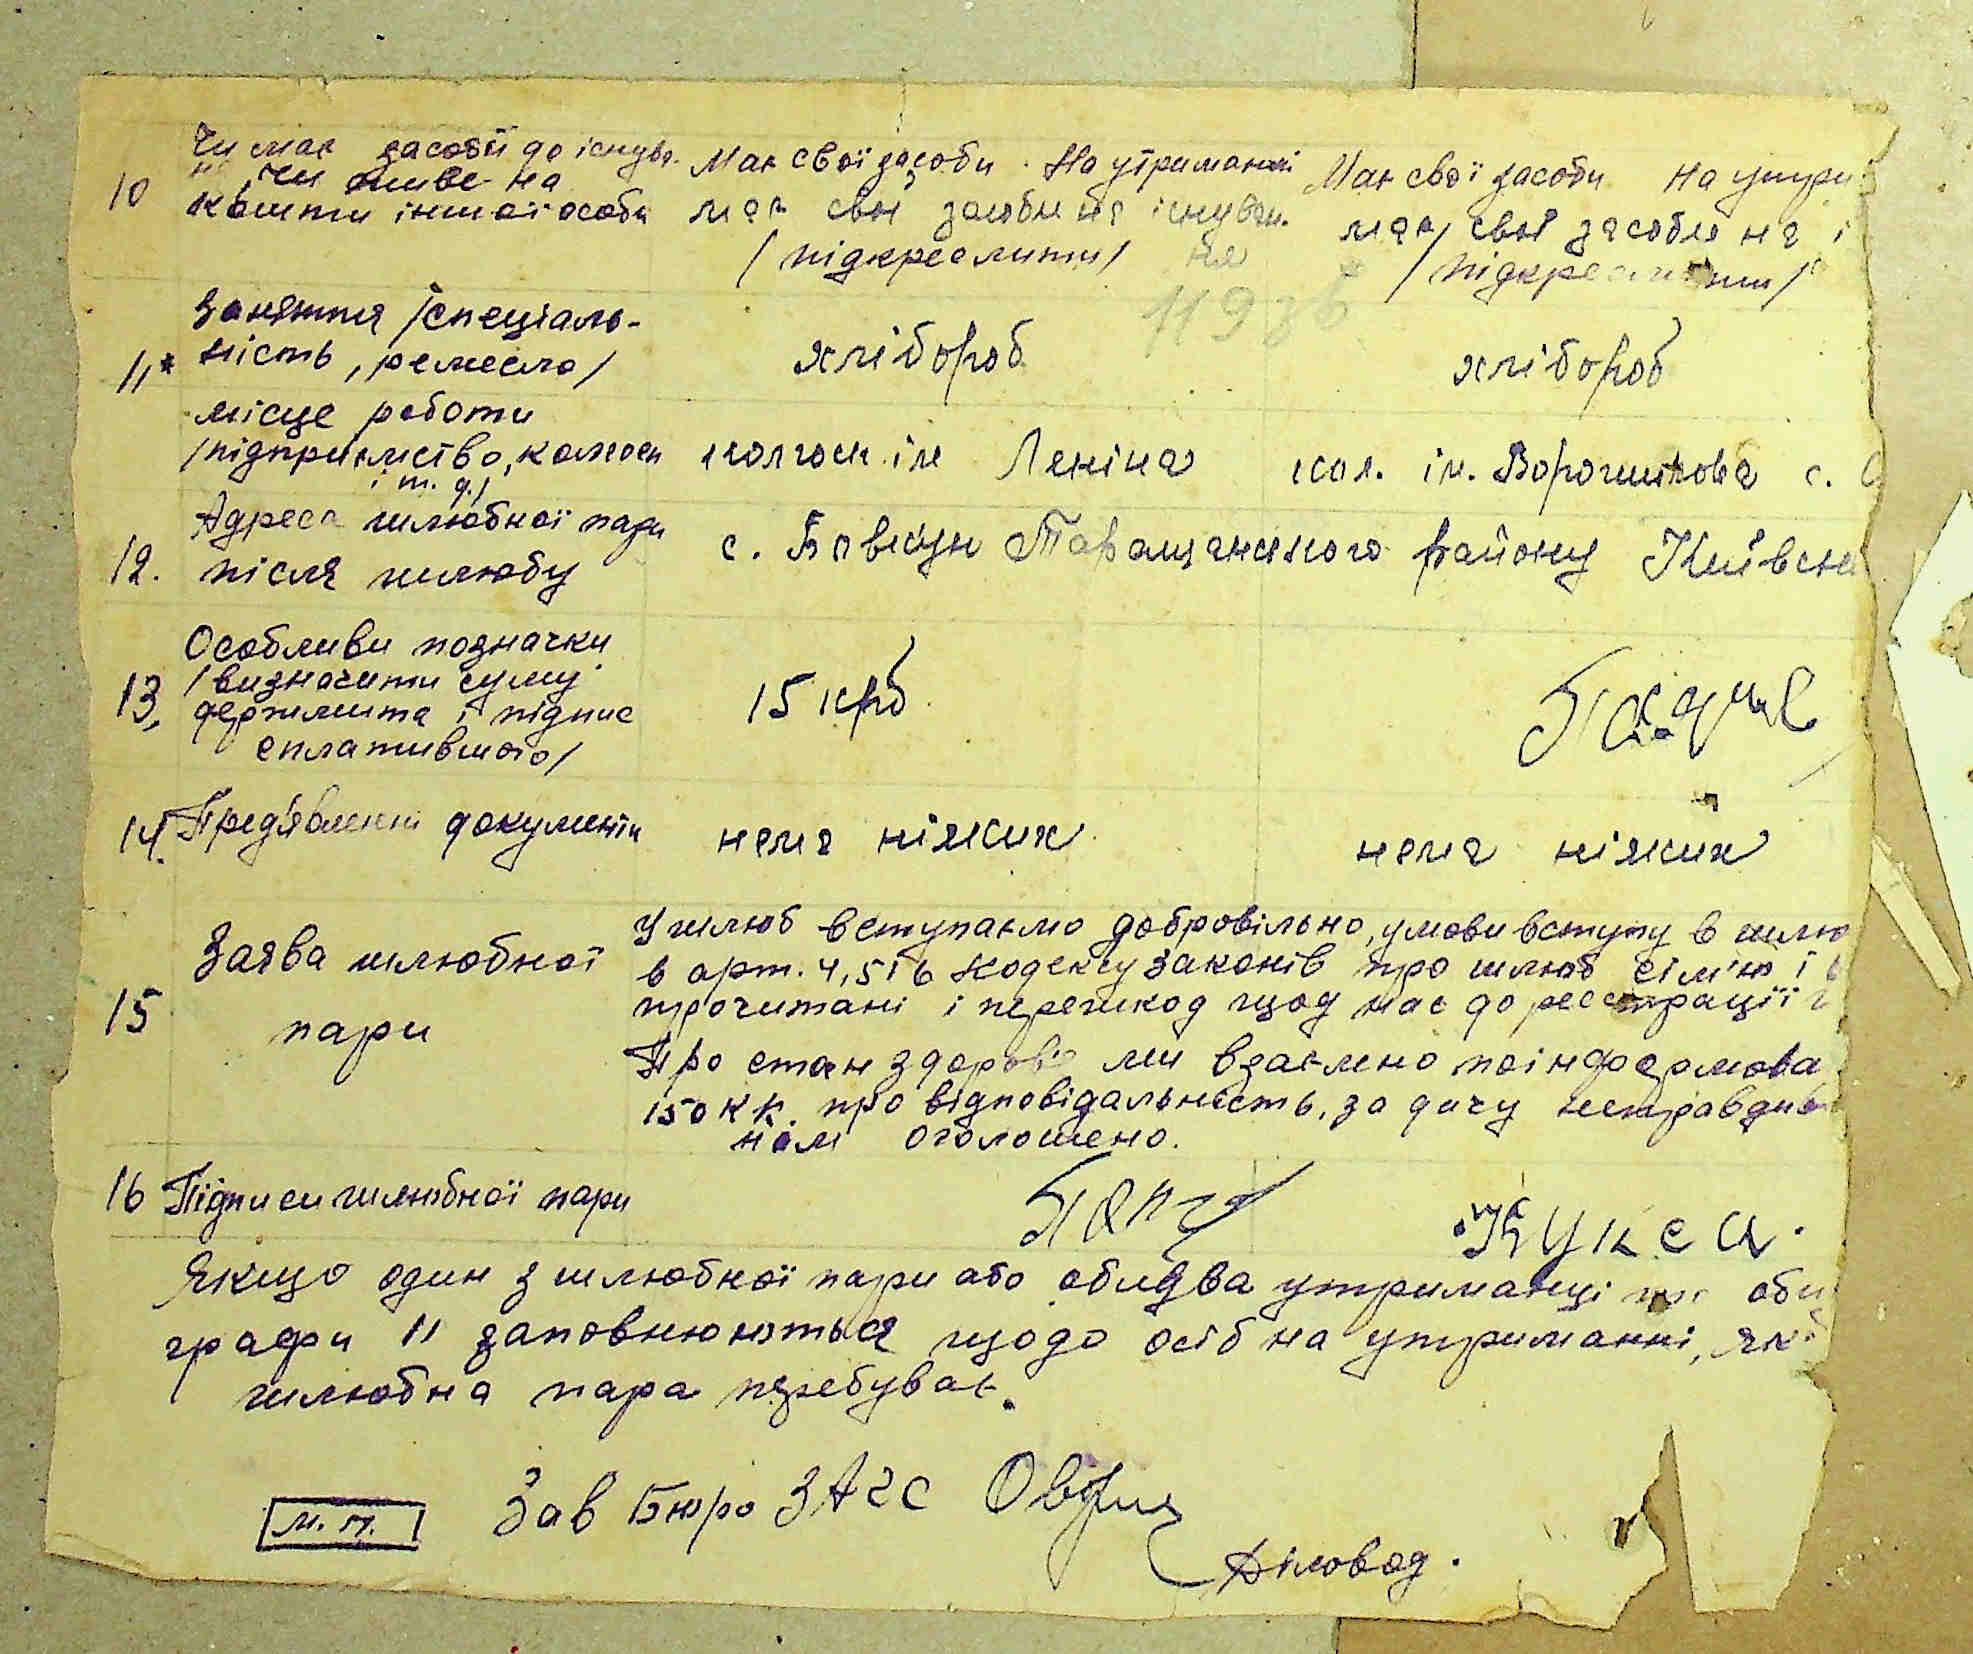 Чи має засоби до існува-
10 ня, чи живе на Має свої засоби. На утриманні Має свої засоби На утри
кошти іншої особи має свої засоби на існуван. має свої засоби на і
/підкреслити/ ня /підкреслити/
Заняття /спеціаль-
11* ність, ремесло/ хлібороб хлібороб
місце роботи
/підприємство, колгосп колгосп ім Леніна кол. ім. Ворошилова с.
і т. д./
Адреса шлюбної пари
12. після шлюбу с. Бовкун Таращанського району Київськ
Особливи позначки
/визначити суму
13, держмита і підпис 15 крб
сплатившого/
14. Предявленні документи нема ніяких нема ніяких
У шлюб вступаємо добровільно, умови вступу в шлю
Заява шлюбної в арт. 4, 5 і 6 Кодексу законів про шлюб сім'ю і
15 прочитані і перешкод щод нас до реєстрації
пари
Про стан здоровя ми взаємно поінформова
150 КК. про відповідальність, за дачу неправдив
нам оголошено.
16 Підписи шлюбної пари Кукса.
Якщо один з шлюбної пари або обидва утриманці то оби
графи 11 заповнюються щодо осіб на утриманні, які
шлюбна пара перебуває.
Зав Бюро ЗАГС
м. п.
Діловод.